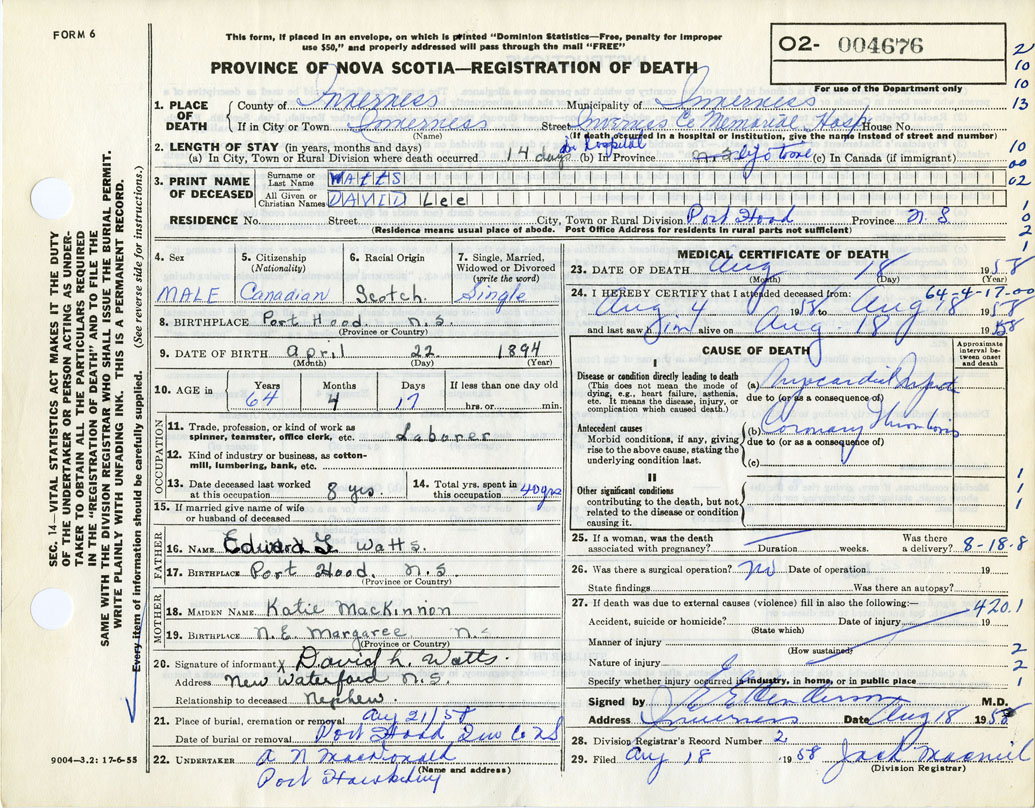 FORM 6
This form, if placed in an envelope, on which is printed "Dominion Statistics—Free, penalty for improper
use $50," and properly addressed will pass through the mail "FREE"
PROVINCE OF NOVA SCOTIA—REGISTRATION OF DEATH
O2- 004676
For use of the Department only
2
10
10
13
10
00
02
1
0
2
1
SEC. 14—VITAL STATISTICS ACT MAKES IT THE DUTY
OF THE UNDERTAKER OR PERSON ACTING AS UNDER-
TAKER TO OBTAIN ALL THE PARTICULARS REQUIRED
IN THE "REGISTRATION OF DEATH" AND TO FILE THE
SAME WITH THE DIVISION REGISTRAR WHO SHALL ISSUE THE BURIAL PERMIT.
WRITE PLAINLY WITH UNFADING INK. THIS IS A PERMANENT RECORD.
Every item of information should be carefully supplied. (See reverse side for instructions.)
1. PLACE OF DEATH
County of Inverness Municipality of Inverness
If in City or Town Inverness Street Inverness Co Memorial Hosp House No.
(Name) (If death occurred in a hospital or institution, give the name instead of street and number)
2. LENGTH OF STAY (in years, months and days)
(a) In City, Town or Rural Division where death occurred 14 days in Hospital (b) In Province life time (c) In Canada (if immigrant)
3. PRINT NAME OF DECEASED
Surname or Last Name WATTS
All Given or Christian Names DAVID Lele
RESIDENCE No. Street City, Town or Rural Division Port Hood Province N.S
(Residence means usual place of abode. Post Office Address for residents in rural parts not sufficient)
4. Sex 5. Citizenship (Nationality) 6. Racial Origin 7. Single, Married, Widowed or Divorced (write the word)
MALE Canadian Scotch. Single
8. BIRTHPLACE Port Hood. N.S.
(Province or Country)
9. DATE OF BIRTH April 22 1894
(Month) (Day) (Year)
10. AGE in Years Months Days If less than one day old
64 4 17 hrs. or min.
OCCUPATION
11. Trade, profession, or kind of work as
spinner, teamster, office clerk, etc. Laborer
12. Kind of industry or business, as cotton-
mill, lumbering, bank, etc.
13. Date deceased last worked
at this occupation 8 yrs.
14. Total yrs. spent in
this occupation 40 yrs
15. If married give name of wife
or husband of deceased
FATHER
16. NAME Edward Watts.
17. BIRTHPLACE Port Hood. N.S
(Province or Country)
MOTHER
18. MAIDEN NAME Katie MacKinnon
19. BIRTHPLACE N.E. Margaree N.S
(Province or Country)
20. Signature of informant X David L. Watts.
Address New Waterford N.S.
Relationship to deceased Nephew.
21. Place of burial, cremation or removal Aug 21/58
Date of burial or removal Port Hood Inv Co NS
22. UNDERTAKER A N MacDonald
(Name and address)
Port Hawkesbury
9004—3.2: 17-6-55
MEDICAL CERTIFICATE OF DEATH
23. DATE OF DEATH Aug 18 1958
(Month) (Day) (Year)
64-4-17-00
24. I HEREBY CERTIFY that I attended deceased from:
Aug 4 1958 to Aug 18 1958
and last saw him alive on Aug. 18 1958
CAUSE OF DEATH
Approximate interval between onset and death
I
Disease or condition directly leading to death
(This does not mean the mode of
dying, e.g., heart failure, asthenia,
etc. It means the disease, injury, or
complication which caused death.)
(a) Myocardial Infarct
due to (or as a consequence of)
Antecedent causes
Morbid conditions, if any, giving
rise to the above cause, stating the
underlying condition last.
(b) Coronary Thrombosis
due to (or as a consequence of)
(c)
II
Other significant conditions
contributing to the death, but not
related to the disease or condition
causing it.
1
1
1
25. If a woman, was the death
associated with pregnancy? Duration weeks. Was there
a delivery? 8-18.8
26. Was there a surgical operation? No Date of operation 19
State findings Was there an autopsy?
27. If death was due to external causes (violence) fill in also the following:—
420.1
Accident, suicide or homicide? Date of injury 19
(State which)
Manner of injury
(How sustained)
Nature of injury
2
2
Specify whether injury occurred in industry, in home, or in public place 1
Signed by Henderson M.D.
Address Inverness Date Aug 18 1958
28. Division Registrar's Record Number 2
29. Filed Aug 18 1958 Jack Macneill
(Division Registrar)